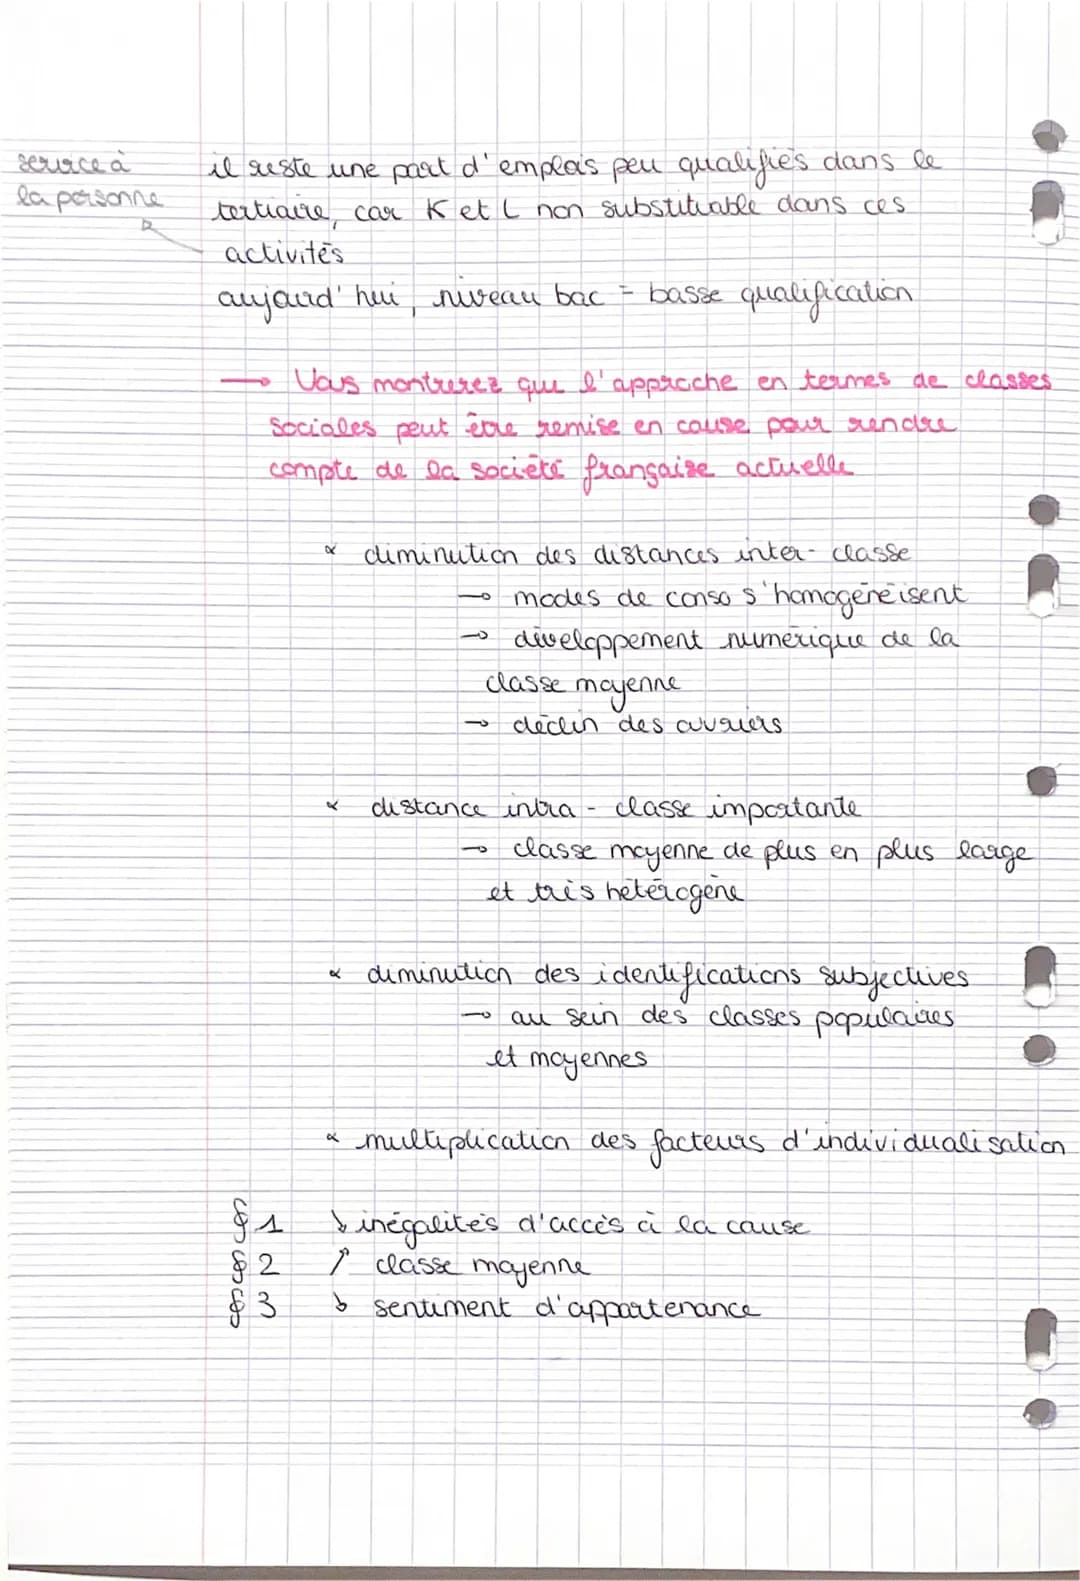 service à
la personne
il reste une part d'emplois peu qualifiés dans le
tertiaire, car K et L non substituable dans ces
activités
aujourd'hui, niveau bac = basse qualification
→ Vous montrerez que l'approche en termes de classes
sociales peut être remise en cause pour rendre
compte de la société française actuelle
× diminution des distances inter-classe
→ modes de conso s'homogénéisent
→ développement numérique de la
classe moyenne
→ déclin des ouvriers
× distance intra-classe importante
→ classe moyenne de plus en plus large
et très hétérogène
× diminution des identifications subjectives
→ au sein des classes populaires
et moyennes
× multiplication des facteurs d'individualisation
§1 ↘ inégalités d'accès à la cause
§2 ↗ classe moyenne
§3 ↘ sentiment d'appartenance